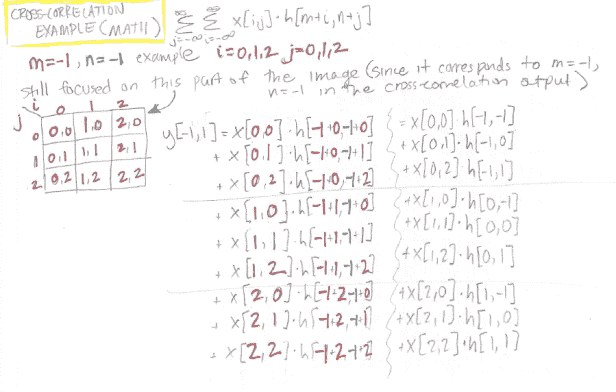 CROSS-CORRELATION
EXAMPLE (MATH)
∞ ∞
Σ Σ x[i,j]·h[m+i,n+j]
j=-∞ i=-∞
m=-1, n=-1 example i=0,1,2 j=0,1,2
still focused on this part of the image (since it corresponds to m=-1,
n=-1 in the cross-correlation output)
i 0 1 2
j
0 0,0 1,0 2,0
1 0,1 1,1 2,1
2 0,2 1,2 2,2
y[-1,1]=x[0,0]·h[-1+0,-1+0] =x[0,0]·h[-1,-1]
+ x[0,1]·h[-1+0,-1+1] +x[0,1]·h[-1,0]
+ x[0,2]·h[-1+0,-1+2] +x[0,2]·h[-1,1]
+ x[1,0]·h[-1+1,-1+0] +x[1,0]·h[0,-1]
+ x[1,1]·h[-1+1,-1+1] +x[1,1]·h[0,0]
+ x[1,2]·h[-1+1,-1+2] +x[1,2]·h[0,1]
+ x[2,0]·h[-1+2,-1+0] +x[2,0]·h[1,-1]
+ x[2,1]·h[-1+2,-1+1] +x[2,1]·h[1,0]
+ x[2,2]·h[-1+2,-1+2] +x[2,2]·h[1,1]